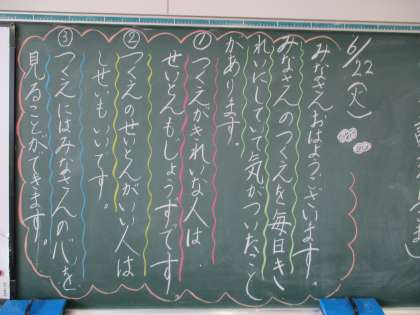 6/22(火)
みなさんおはようございます。
みなさんのつくえを毎日き
れいにしていて気がついたこと
があります。
①つくえがきれいな人は
せいとんもじょうずです。
②つくえのせいとんがいい人は
しせいもいいです。
③つくえにはみなさんの心を
見ることができます。